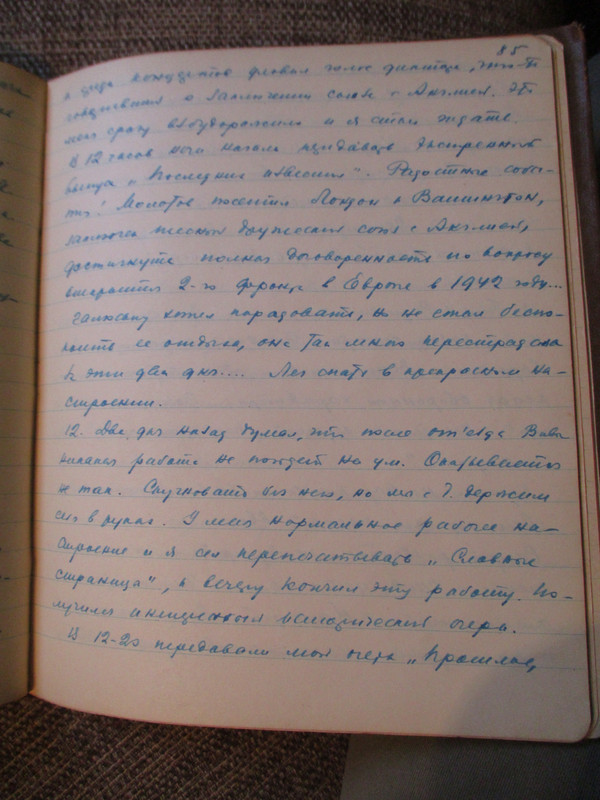 85
в цеде концертов голос диктора, что-то
сообщения о заключении союза с Англией. Это
меня сразу взбудоражило и я стал ждать.
В 12 часов ночи начали передавать экстренный
выпуск „Последние известия". Радостные собы-
тия! Молотов посетил Лондон и Вашингтон,
заключен тесный дружеский союз с Англией,
достигнута полная договоренность по вопросу
открытия 2-го фронта в Европе в 1942 году...
Галюську хотел порадовать, но не стал беспо-
коить ее отдыха, она так много перестрадала
в эти два дня.... Лег спать в прекрасном на-
строении.
12. Два дня назад думал, что после от'езда Вивы
никакая работа не пойдет на ум. Оказывается
не так. Скучновато без него, но мы с Г. держим
себя в руках. У меня нормальное рабочее на-
строение и я сел перепечатывать „Славные
страницы", к вечеру кончил эту работу. По-
лучился исторический очерк.
В 12-20 передавали мой очерк „Прошлое,